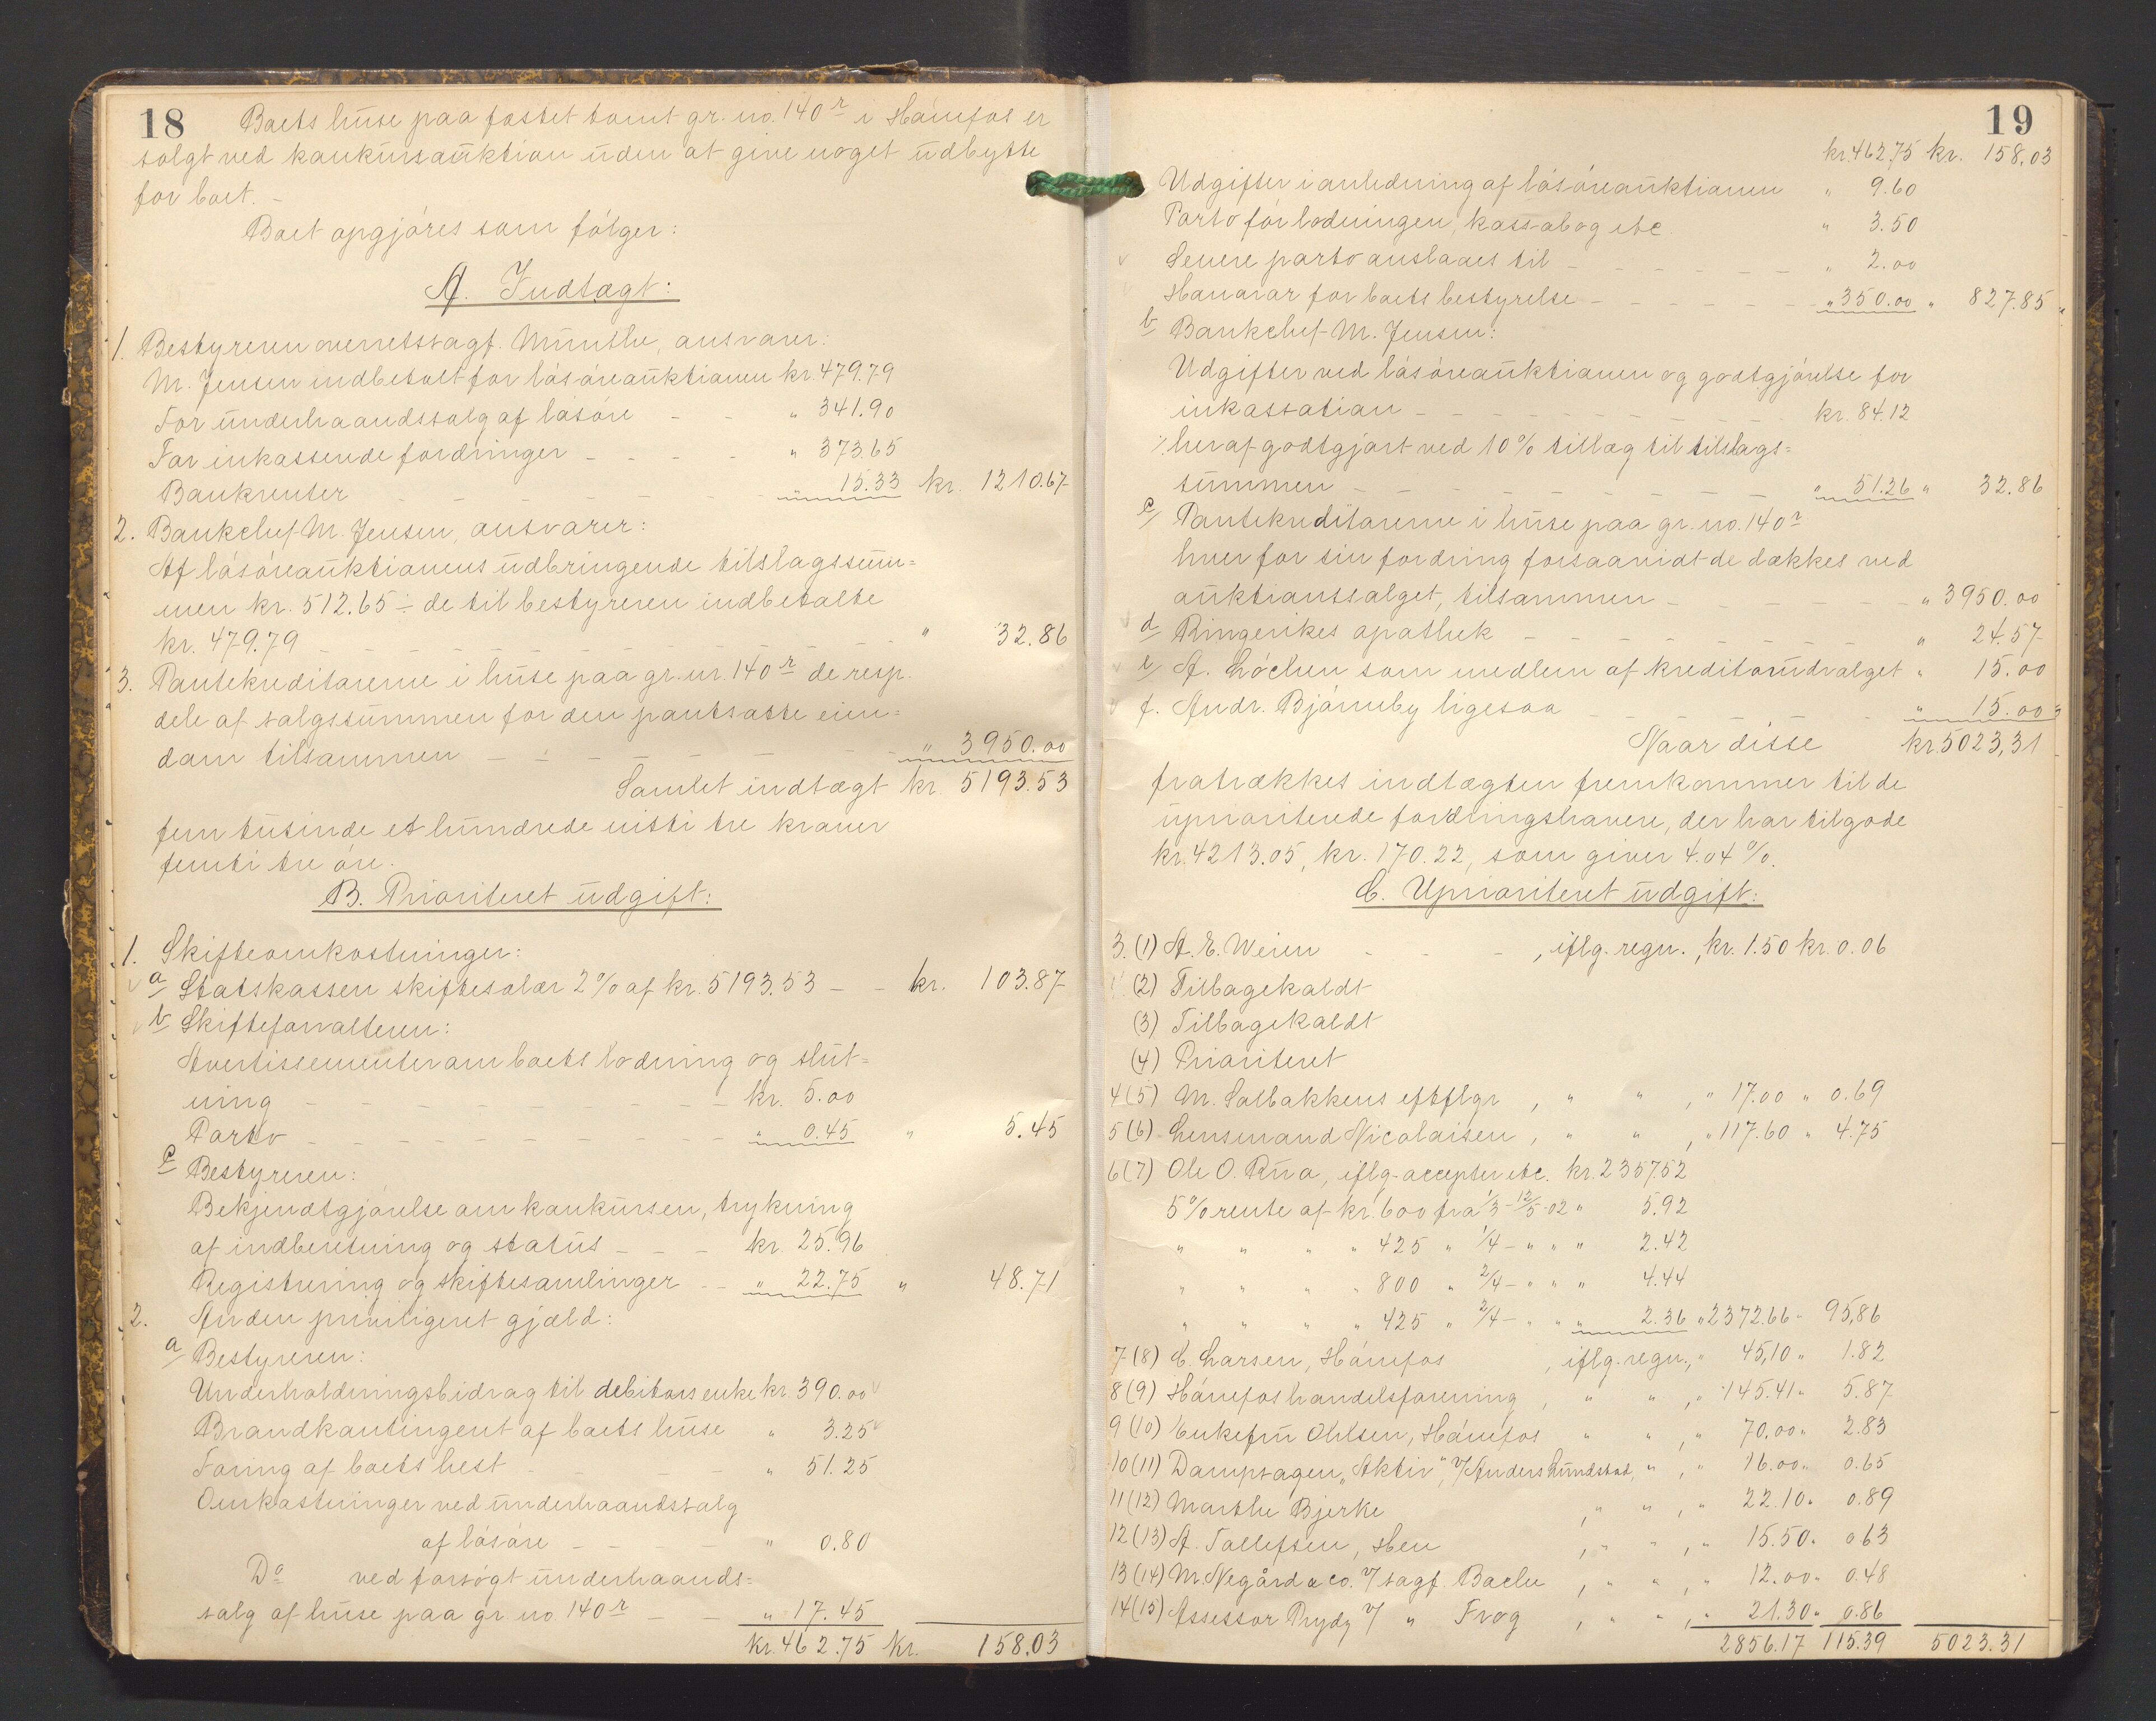 18
Boets huse paa fæstet tomt gr. no. 140ᵃ i Hønefos er
solgt ved konkursauktion uden at give noget udbytte
for boet. –
Boet opgjøres som følger:
A. Indtægt:
1. Bestyreren overretssagf. Münthe, ansvarer:
M. Jensen indbetalt for løsøreauktionen kr. 479.79
For underhaandssalg af løsøre – – " 341.90
For inkasserede fordringer – – – – " 373.65
Bankrenter – – – – – – – " 15.33 kr. 1210.67
2. Bankchef M. Jensen, ansvarer:
Af løsøreauktionens udbringende tilslagssum=
men kr. 512.65 ÷ de til bestyreren indbetalte
kr. 479.79 – – – – – – – – – " 32.86
3. Pantekreditorerne i huse paa gr. nr. 140ᵃ de resp.
dele af salgssummen for den pantsatte eien=
dom tilsammen – – – – – – – " 3950.00
Samlet indtægt kr. 5193.53
fem tusinde et hundrede nitti tre kroner
femti tre øre.
B. Prioriteret udgift:
1. Skifteomkostninger:
a Statskassen skiftesalær 2% af kr. 5193.53 – – kr. 103.87
b Skifteforvalteren:
Avertissementer om boets lodning og slut=
ning – – – – – – – – – kr. 5.00
Porto – – – – – – – – – " 0.45 " 5.45
c Bestyreren:
Bekjendtgjørelse om konkursen, trykning
af indberetning og status – – – kr. 25.96
Registrering og skiftesamlinger – – " 22.75 " 48.71
2. Anden priviligeret gjæld:
a Bestyreren:
Underholdningsbidrag til debitors enke kr. 390.00
Brandkontingent af boets huse " 3.25
Foring af boets hest – – – – " 51.25
Omkostninger ved underhaandssalg
af løsøre – – – – " 0.80
Do ved forsøgt underhaands=
salg af huse paa gr. no. 140ᵃ – – " 17.45
kr. 462.75 kr. 158.03
19
kr. 462.75 kr. 158,03
Udgifter i anledning af løsøreauktionen " 9.60
Porto før lodningen, kassabog etc. " 3.50
Senere porto anslaaes til – – – – – – " 2.00
Honorar for boets bestyrelse – – – – – – " 350.00 " 827.85
b Bankchef M. Jensen:
Udgifter ved løsøreauktionen og godtgjørelse for
inkassation – – – – – – – – – kr. 84.12
÷ heraf godtgjort ved 10% tillæg til tilslags=
summen – – – – – – – – – " 51.26 " 32.86
c Pantekreditorerne i huse paa gr. no. 140ᵃ
hver for sin fordring forsaavidt de dækkes ved
auktionssalget, tilsammen – – – – – – " 3950.00
d Ringerikes apothek – – – – – – – – " 24.57
e A. Løchen som medlem af kreditorudvalget " 15.00
f. Andr. Bjørneby ligesaa – – – – – " 15.00
Naar disse kr. 5023,31
fratrækkes indtægten fremkommer til de
uprioriterede fordringshavere, der har tilgode
kr. 4213.05, kr. 170.22, som giver 4.04%.
C. Uprioriteret udgift:
3. (1) A. E. Weien – – – , iflg. regn., kr. 1.50 kr. 0.06
(2) Tilbagekaldt
(3) Tilbagekaldt
(4) Prioriteret
4 (5) M. Solbakkens eftflgr , " " , " 17.00 " 0.69
5 (6) Lensmand Nicolaisen , " " , " 117.60 " 4.75
6 (7) Ole O. Rua, iflg. accepter etc. kr. 2357.52
5% rente af kr. 600 fra 1/3 – 12/5 – 02 " 5.92
" " " " 425 " 1/4 – " " " 2.42
" " " " 800 " 2/4 – " " " 4.44
" " " " 425 " 2/4 – " " " 2.36 " 2372.66 " 95,86
7 (8) C. Larsen, Hønefos , iflg. regn., " 45,10 " 1.82
8 (9) Hønefos handelsforening , " " , " 145.41 " 5.87
9 (10) Enkefru Ohlsen, Hønefos " " , " 70.00 " 2.83
10 (11) Dampsagen "Aktiv", v/ Anders Lundstad, " , " 16.00 " 0.65
11 (12) Marthe Bjerke , " " , " 22.10 " 0.89
12 (13) A. Tollefsen, Hen , " " , " 15.50 " 0.63
13 (14) M. Negård & Co. v/ sagf. Bache , " " , " 12.00 " 0.48
14 (15) Assessor Prydz v/ " Frog , " " , " 21.30 " 0.86
2856.17 115.39 5023.31